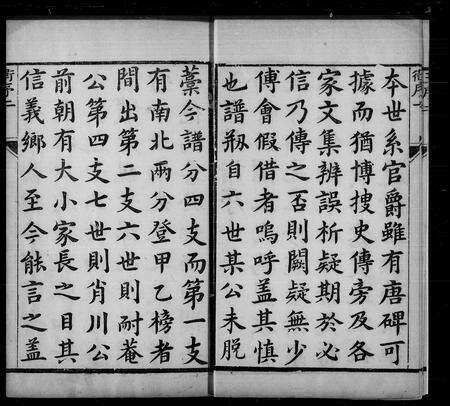 本世系官爵雖有唐碑可
據而猶博搜史傳旁及各
家文集辨誤析疑期於必
信乃傳之否則闕疑無少
傅會假借者嗚呼盖其慎
也譜刱自六世某公未脱
藁今譜分四支而第一支
有南北兩分登甲乙榜者
間出第二支六世則耐菴
公第四支七世則肖川公
前朝有大小家長之目其
信義鄉人至今能言之盖